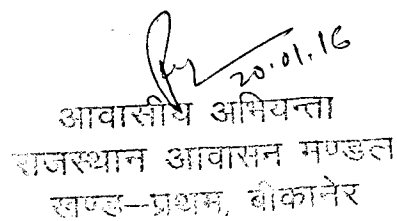 20.01.16
आवासीय अभियन्ता
राजस्थान आवासन मण्डल
खण्ड—प्रथम, बीकानेर